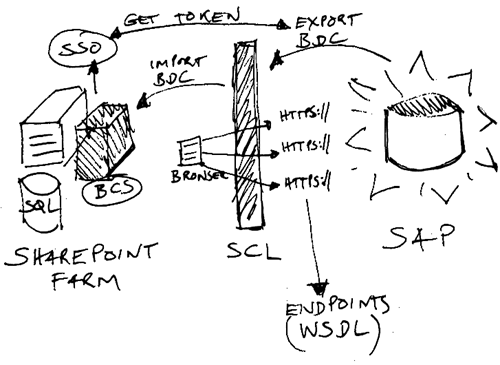 GET TOKEN
EXPORT
BDC
SSO
IMPORT
BDC
HTTPS://
HTTPS://
HTTPS://
BROWSER
SQL
BCS
SHAREPOINT
FARM
SCL
SAP
ENDPOINTS
(WSDL)